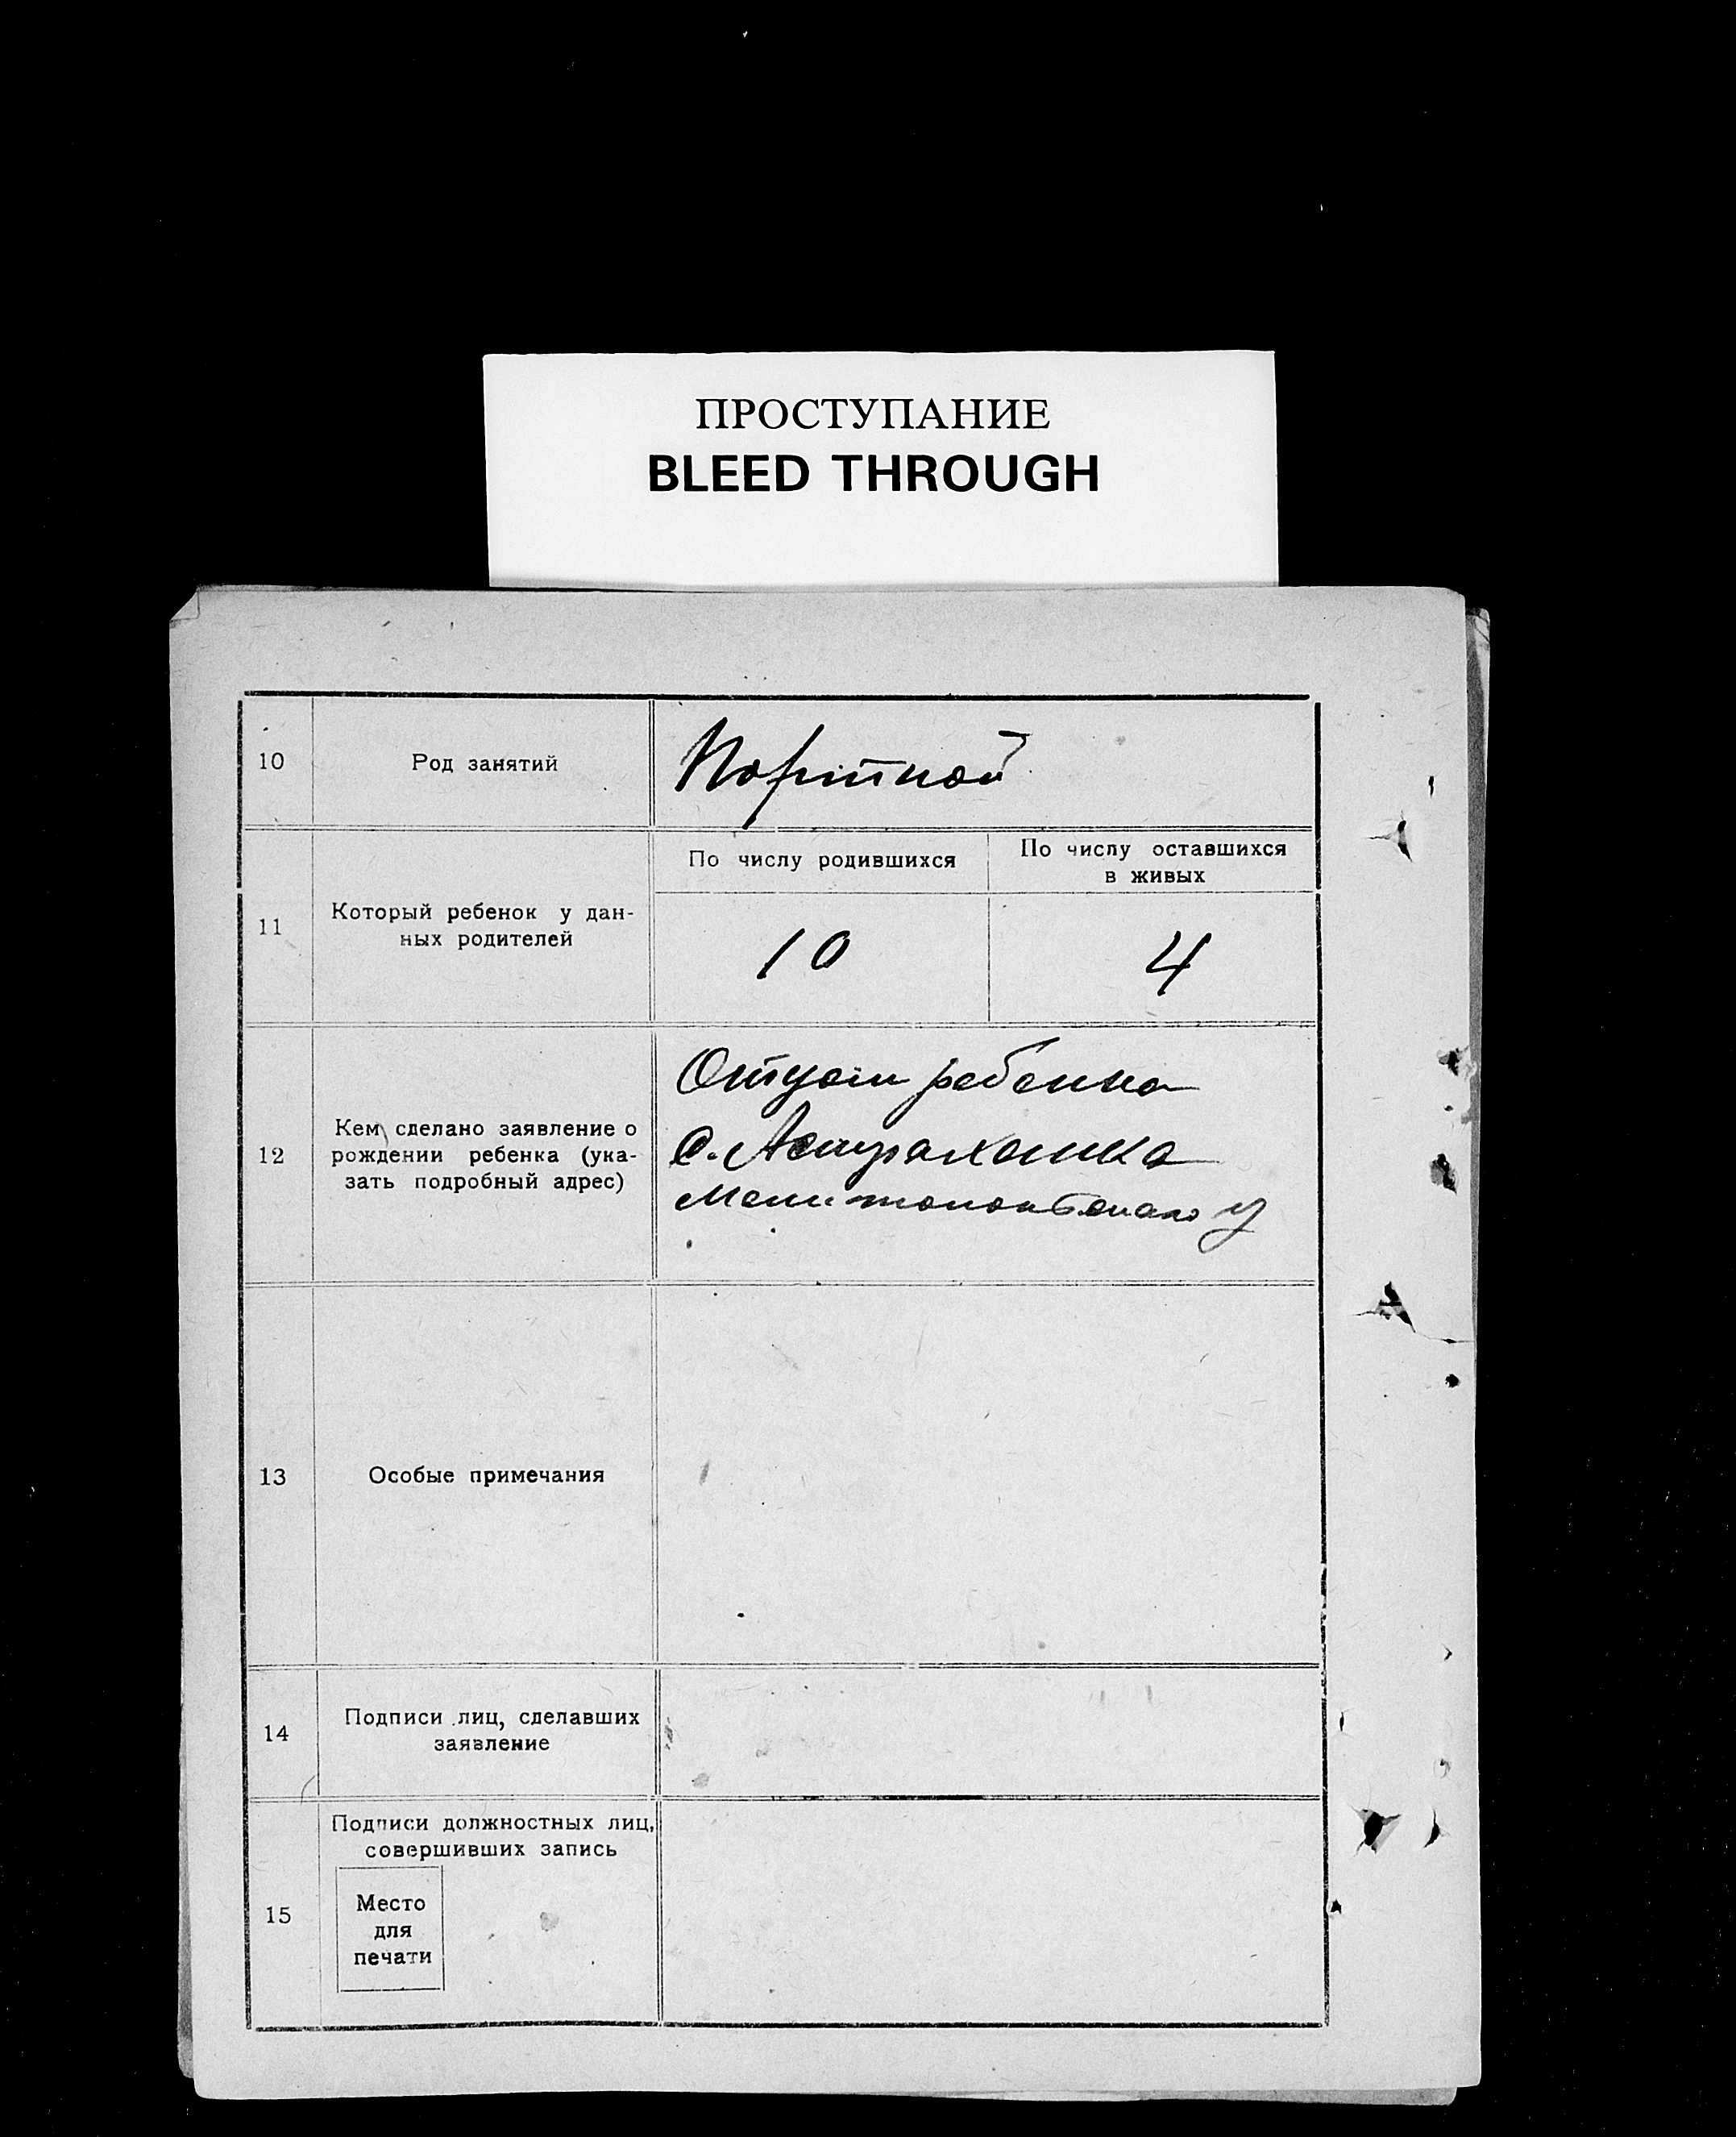 ПРОСТУПАНИЕ
BLEED THROUGH
10
Род занятий
Портной
11
Который ребенок у дан-
ных родителей
По числу родившихся
По числу оставшихся
в живых
10
4
12
Кем сделано заявление о
рождении ребенка (ука-
зать подробный адрес)
Отцом ребенка
с. Астраханка
Мелитопольского у
13
Особые примечания
14
Подписи лиц, сделавших
заявление
15
Подписи должностных лиц,
совершивших запись
Место
для
печати